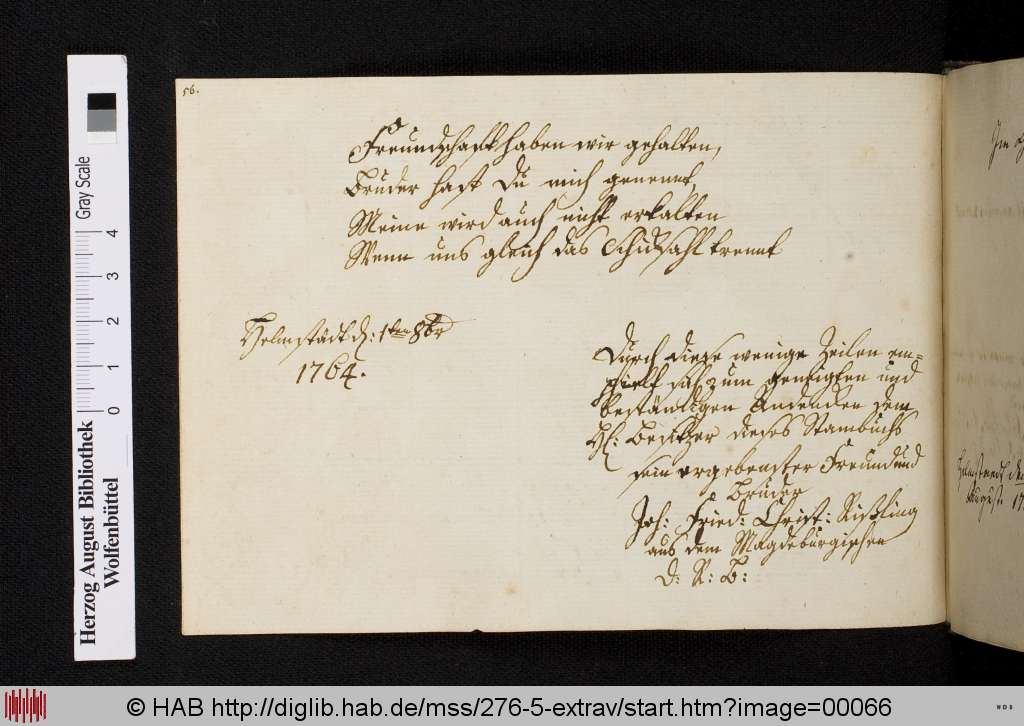 56.
Freundschafft haben wir gehalten,
Bruder hast Du mich genennt,
Meine wird auch nicht erkalten
Wenn uns gleich das Schicksahl trennt
Helmstädt d: 1ten 8br
1764.
Durch diese wenige Zeilen em=
pfielt sich zum geneigten und
beständigen Andencken dem
H: Besitzer dieses Stambuchs
sein ergebenster Freund und
Bruder
Joh: Fried: Christ:
aus dem Magdeburgischen
d: R: B:
Herzog August Bibliothek
Wolfenbüttel
Gray Scale
0 1 2 3 4
© HAB http://diglib.hab.de/mss/276-5-extrav/start.htm?image=00066
WDB